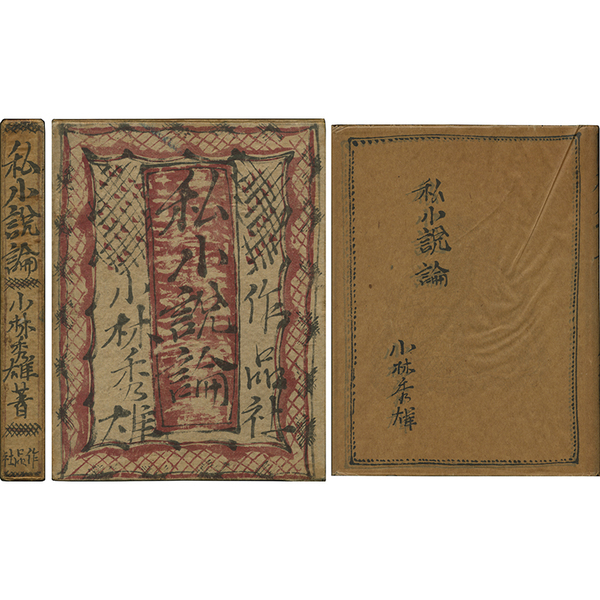 私小説論
小林秀雄著
作品社
作品社
私小説論
小林秀雄
私小説論
小林秀雄